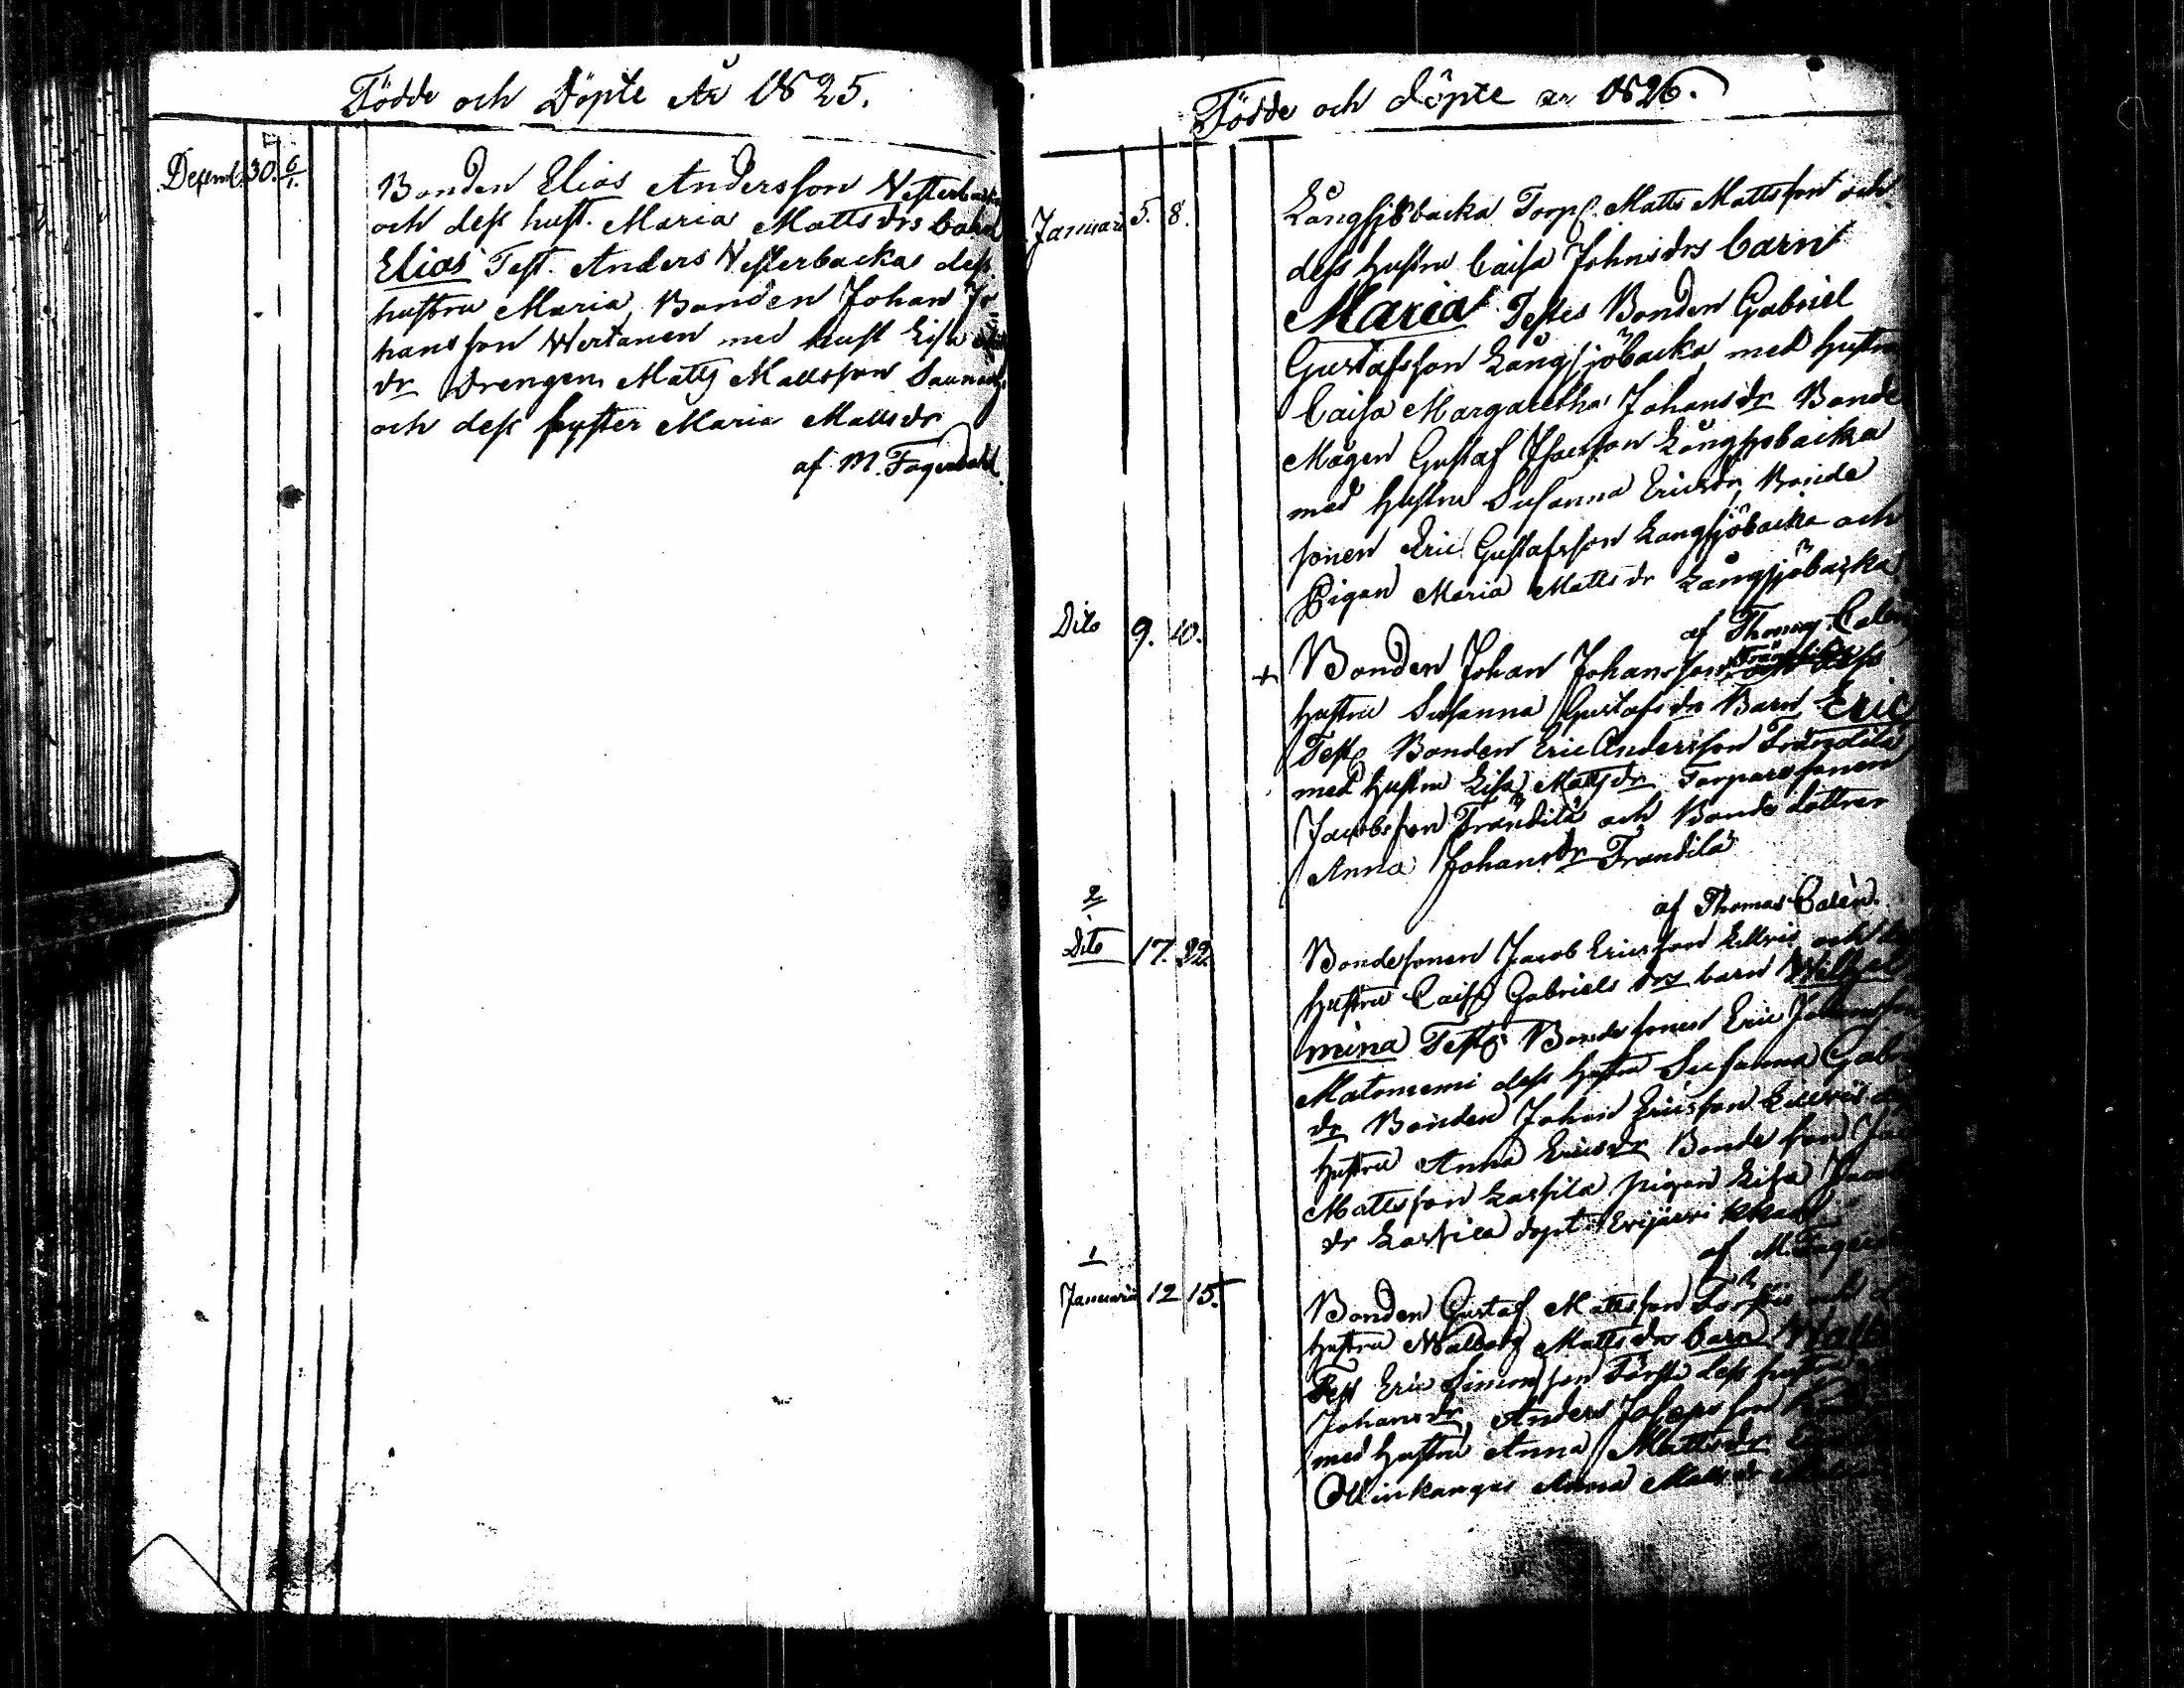 Födde och Döpte År 1825.
Decemb. 30. 6/1.
Bonden Elias Andersson Westerbacka
och dess hust. Maria Mattsdrs barn
Elias Test. Anders Westerbacka dess
hustru Maria, Bonden Johan Jo-
hansson Wertanen med hust Lisa
dr Drengen Matts Mattsson
och dess syster Maria Mattsdr
af M. Fagerdahl.
Födde och döpte år 1826.
Januari 5. 8.
Långsjöbacka Torp. Matts Mattsson och
dess hustru Caisa Johnsdrs barn
Maria Testes Bonden Gabriel
Gustafsson Långsjöbacka med hustru
Caisa Margaretha Johansdr Bonde
Mågen Gustaf Isacsson Långsjöbacka
med hustru Susanna Ericsdr, Bonde
sonen Eric Gustafsson Långsjöbacka och
Pigan Maria Mattsdr Långsjöbacka
af Thomas
Dito 9. 10.
+ Bonden Johan Johansson
hustru Susanna Gustafsdr Barn Eric
Test Bonden Eric Andersson Trändilä
med hustru Lisa Mattsdr Torparesonen
Jacobsson Trändilä och Bonde dottren
Anna Johansdr Trändilä
af Thomas Calén.
2
Dito 17. 22.
Bondesonen Jacob Ericsson Lillvis och
hustru Caisa Gabriels drs barn Wilhel
mina Test Bondesonen Eric Johansson
Matoniemi dess hustru Susanna Gabr
dr Bonden Johan Ericsson Lillvis
hustru Anna Ericsdr Bonde son
Mattsson Lassila pigan Lisa
dr Lassila döpt i Evijärvi
af M.
1
Januari 12 15. +
Bonden Gustaf Mattsson och
hustru Walborg Mattsdrs barn
Test Eric Simonsson dess hustru
Johansdr, Anders
med hustru Anna Mattsdr
Ollinkangas Anna Mattsdr